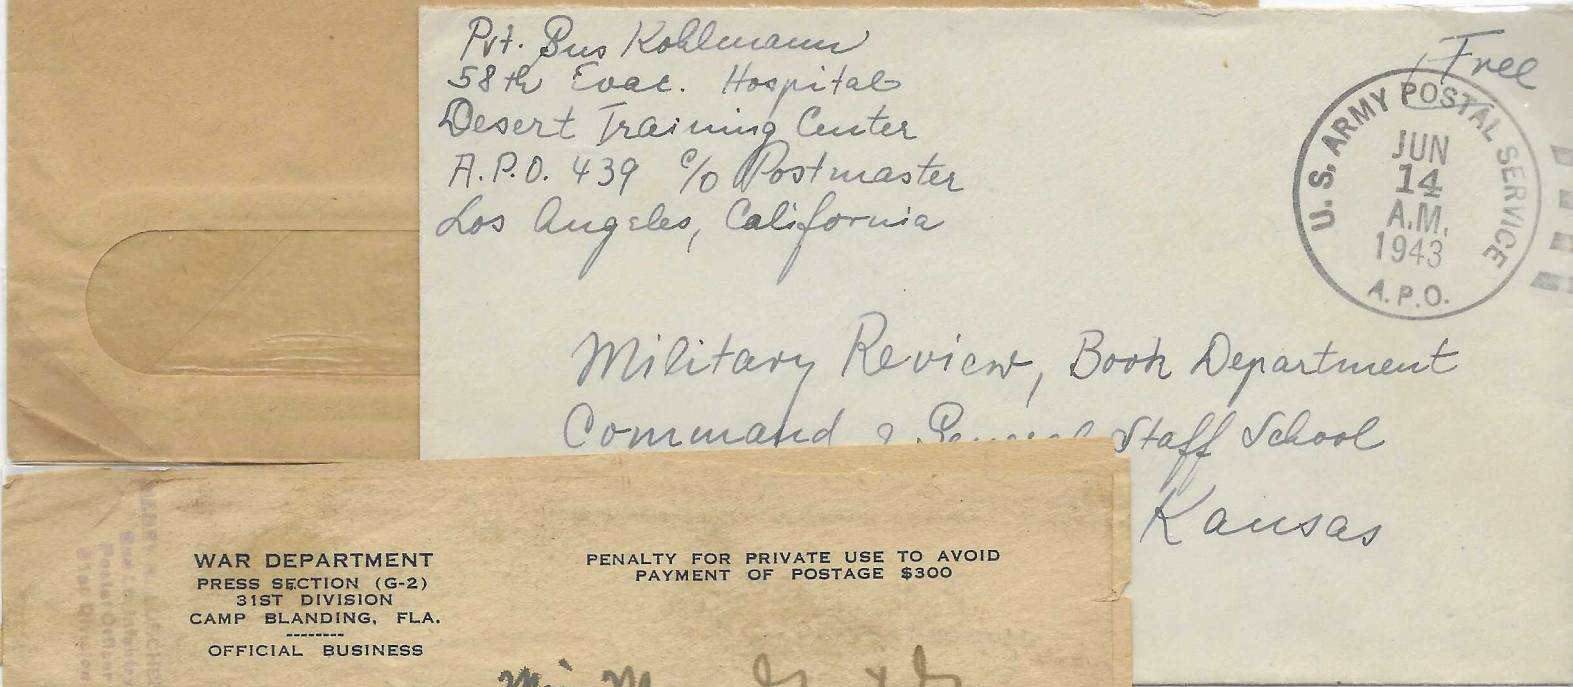 Pvt. Bus Kohlmann
58th Evac. Hospital
Desert Training Center
A.P.O. 439 c/o Postmaster
Los Angeles, California
Free
U.S. ARMY POSTAL SERVICE
JUN
14
A.M.
1943
A.P.O.
Military Review, Book Department
Command & General Staff School
Kansas
WAR DEPARTMENT
PRESS SECTION (G-2)
31ST DIVISION
CAMP BLANDING, FLA.
OFFICIAL BUSINESS
PENALTY FOR PRIVATE USE TO AVOID
PAYMENT OF POSTAGE $300
2nd Lt. Infantry
Postal Officer
31st Division